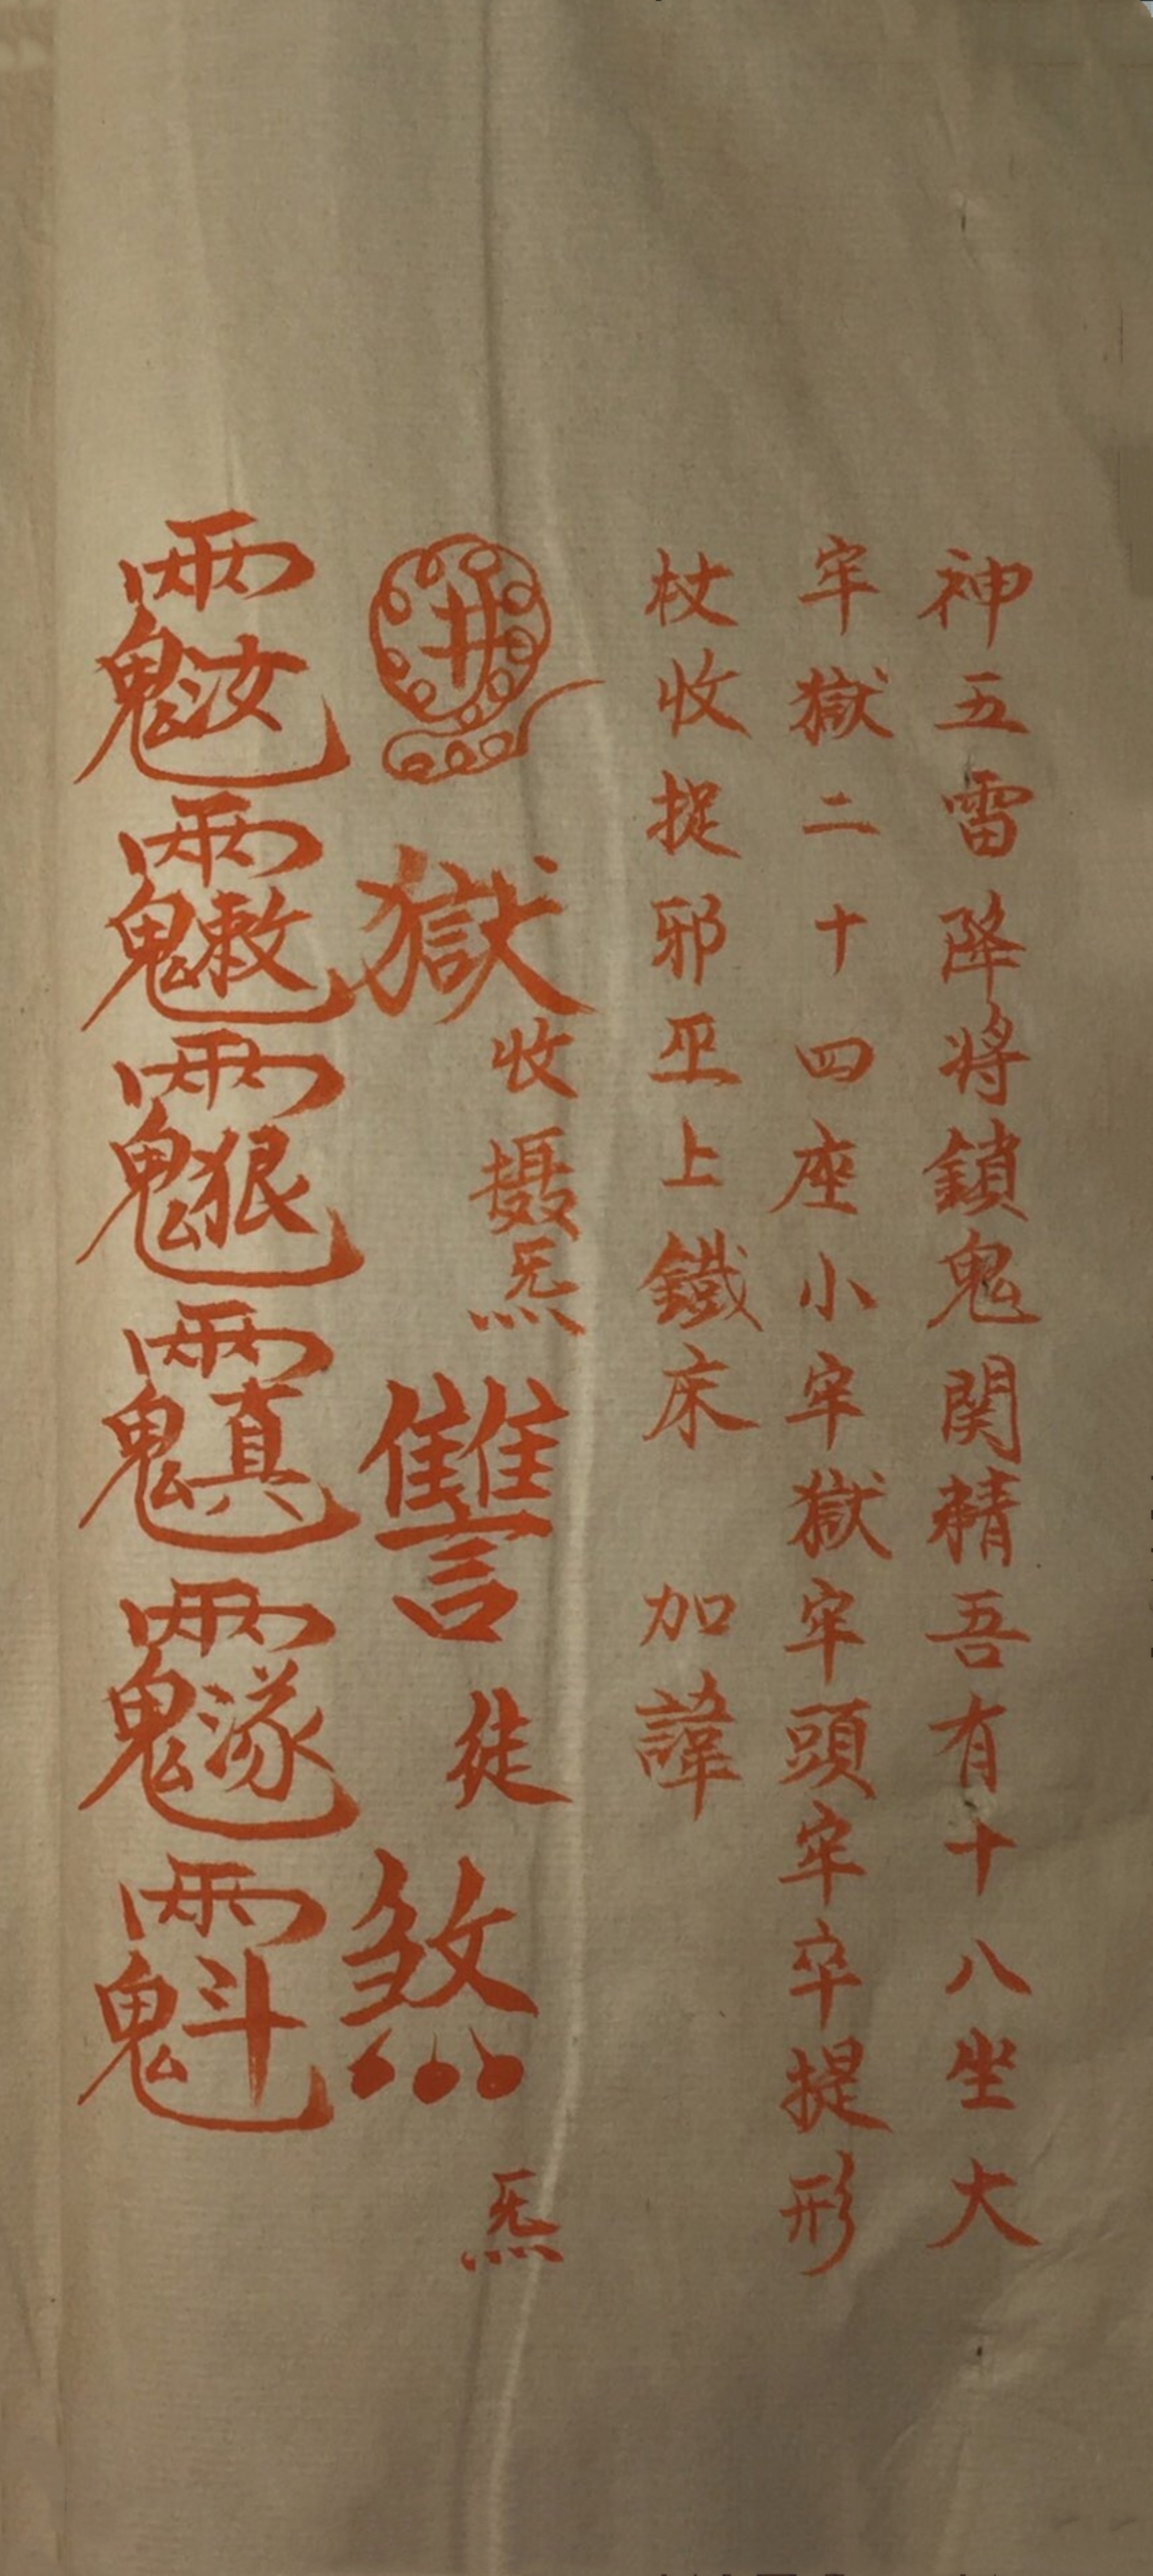 神五雷降将鎖鬼関精吾有十八坐大
牢獄二十四座小牢獄牢頭牢卒提形
杖收捉邪巫上鐵床 加諱
獄收摄炁讐徒煞炁